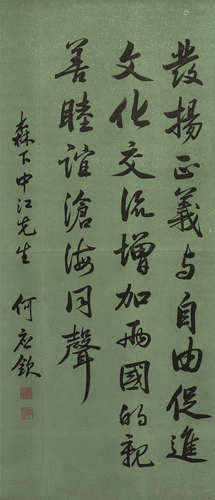 發揚正義与自由促進
文化交流增加兩國的親
善睦誼滄海同聲
森下中江先生 何应欽